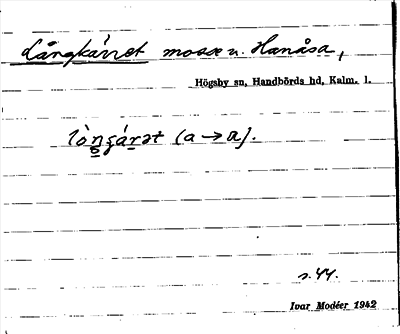 Långkärret mosse n. Hanåsa,
Högsby sn, Handbörds hd, Kalm. l.
(a → ɑ).
s. 44.
Ivar Modéer 1942